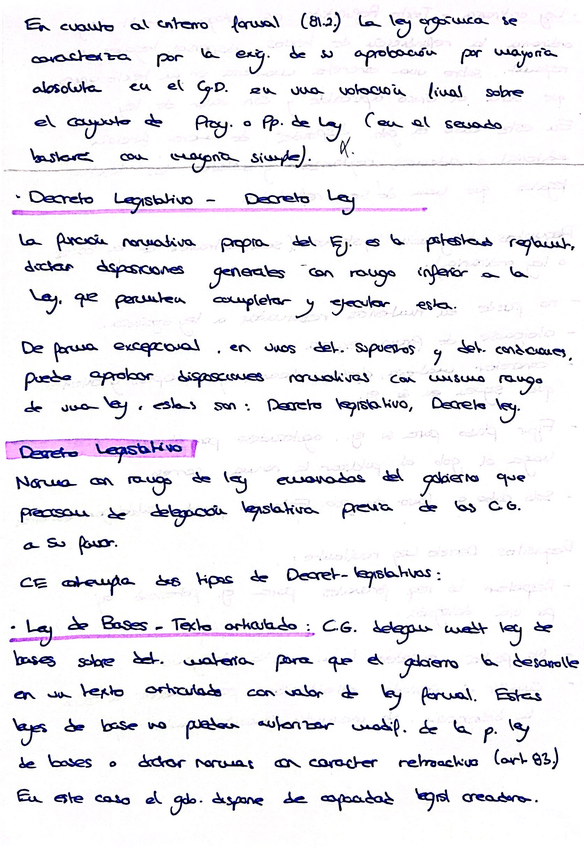 En cuanto al criterio formal (81.2) la ley orgánica se
caracteriza por la exig. de su aprobación por mayoría
absoluta en el CgD. en una votación final sobre
el conjunto de Proy. o Pp. de Ley (en el senado
bastará con mayoría simple).
· Decreto Legislativo - Decreto Ley
La función normativa propia del Ej. es la potestad reglamt,
dictar disposiciones generales con rango inferior a la
Ley, que permiten completar y ejecutar esta.
De forma excepcional, en unos det. supuestos y det. condiciones,
puede aprobar disposiciones normativas con mismo rango
de una ley, estas son: Decreto legislativo, Decreto ley.
Decreto Legislativo
Norma con rango de ley emanadas del gobierno que
precisan de delegación legislativa previa de las C.G.
a su favor.
CE contempla dos tipos de Decret-legislativos:
· Ley de Bases - Texto articulado: C.G. delegan medt ley de
bases sobre det. materia para que el gobierno la desarrolle
en un texto articulado con valor de ley formal. Estas
leyes de base no pueden autorizar modif. de la p. ley
de bases o dictar normas con caracter retroactivo (art 83.)
En este caso el gob. dispone de capacidad legisl creadora.